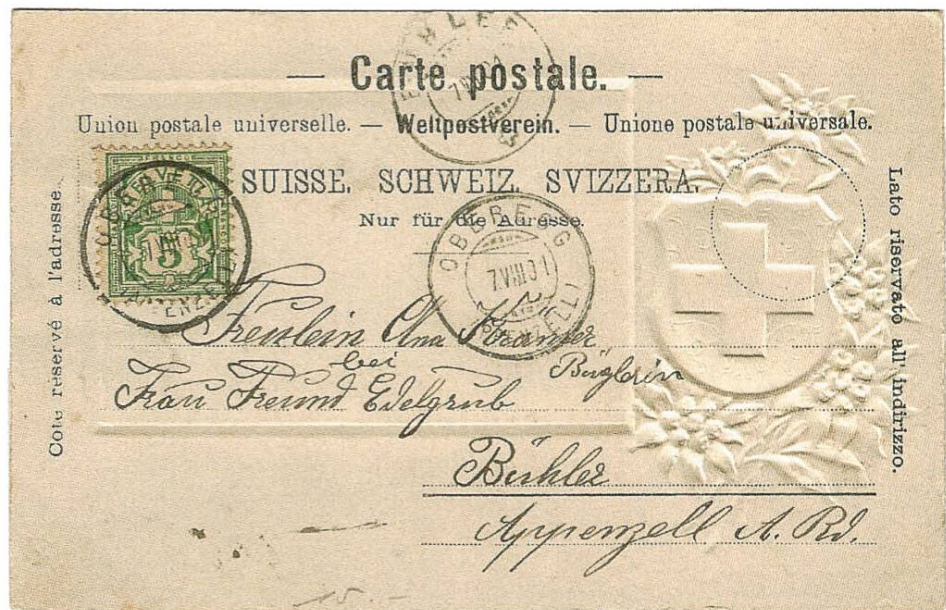 — Carte postale. —
Union postale universelle. — Weltpostverein. — Unione postale universale.
SUISSE. SCHWEIZ. SVIZZERA.
Nur für die Adresse.
Coté réservé à l'adresse.
Lato riservato all' indirizzo.
BÜHLER
OBEREGG
7.VIII.01
(APPENZELL)
5
Freulein Ana
bei Büglerin
Frau Freund Edelgrub
Bühler
Appenzell A. Rd.
15.–